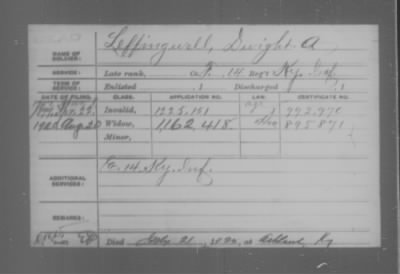 NAME OF SOLDIER: Leffingwell, Dwight A
SERVICE: Late rank, Co. F, 14 Reg't Ky. Inf.
TERM OF SERVICE: Enlisted 1 Discharged 1
DATE OF FILING. CLASS. APPLICATION NO. LAW. CERTIFICATE NO.
Invalid, 1225.151 992.970
1920 Aug 20 Widow, 1162.418 895.871
Minor,
ADDITIONAL SERVICES: E. 14. Ky. Inf.
REMARKS:
Died 21, at Ashland Ky